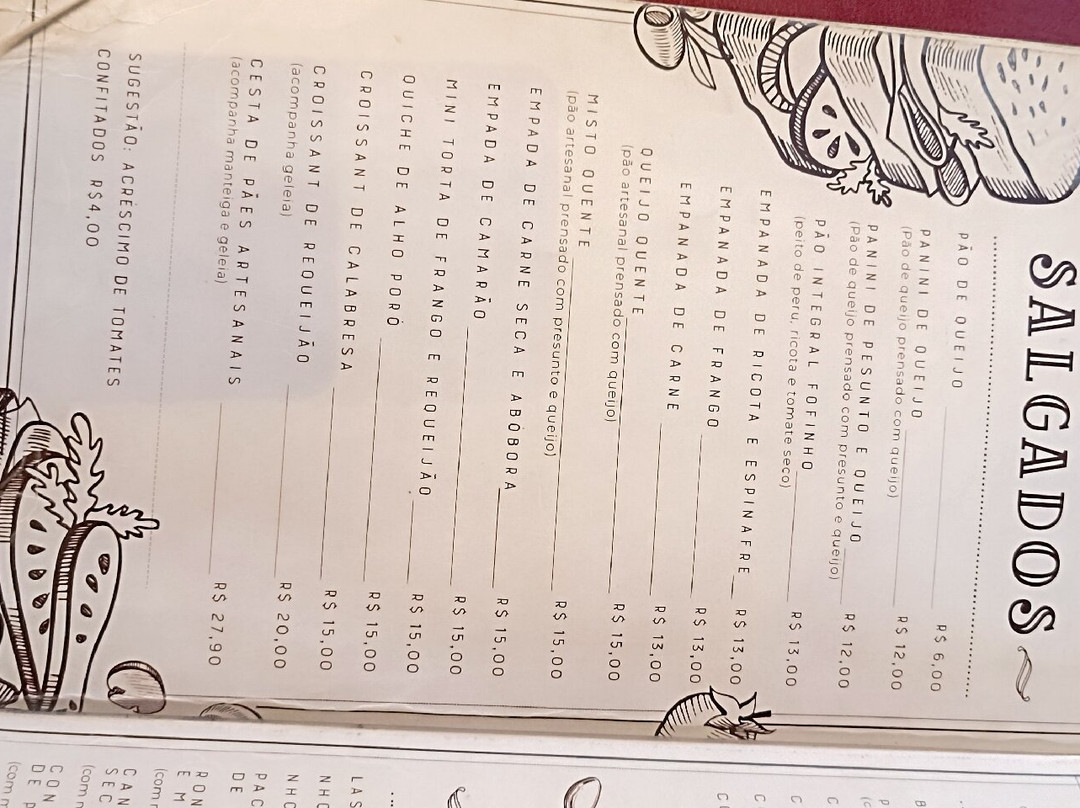 SALGADOS
PÃO DE QUEIJO R$ 6,00
PANINI DE QUEIJO R$ 12,00
(Pão de queijo prensado com queijo)
PANINI DE PESUNTO E QUEIJO R$ 12,00
(Pão de queijo prensado com presunto e queijo)
PÃO INTEGRAL FOFINHO R$ 13,00
(peito de peru, ricota e tomate seco)
EMPANADA DE RICOTA E ESPINAFRE R$ 13,00
EMPANADA DE FRANGO R$ 13,00
EMPANADA DE CARNE R$ 13,00
QUEIJO QUENTE R$ 15,00
(pão artesanal prensado com queijo)
MISTO QUENTE R$ 15,00
(pão artesanal prensado com presunto e queijo)
EMPADA DE CARNE SECA E ABÓBORA R$ 15,00
EMPADA DE CAMARÃO R$ 15,00
MINI TORTA DE FRANGO E REQUEIJÃO R$ 15,00
QUICHE DE ALHO PORÓ R$ 15,00
CROISSANT DE CALABRESA R$ 15,00
CROISSANT DE REQUEIJÃO R$ 20,00
(acompanha geleia)
CESTA DE PÃES ARTESANAIS R$ 27,90
(acompanha manteiga e geleia)
SUGESTÃO: ACRÉSCIMO DE TOMATES
CONFITADOS R$4,00